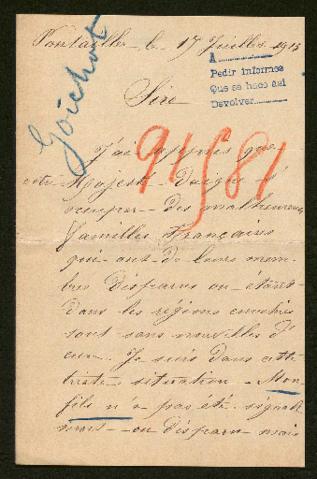 Pontailler le 17 Juillet 1915
A
Pedir informes
Que se hace así
Devolver
Goichot
Sire
91581
J'ai appris que
votre Majesté Daigne s'
occuper des malheureuses
familles Françaises
qui ont de leurs mem-
bres Disparus ou étant
Dans les régions envahies
sont sans nouvelles d'
eux. Je suis Dans cette
triste situation. Mon
fils n'a pas été signalé
mort ou disparu mais